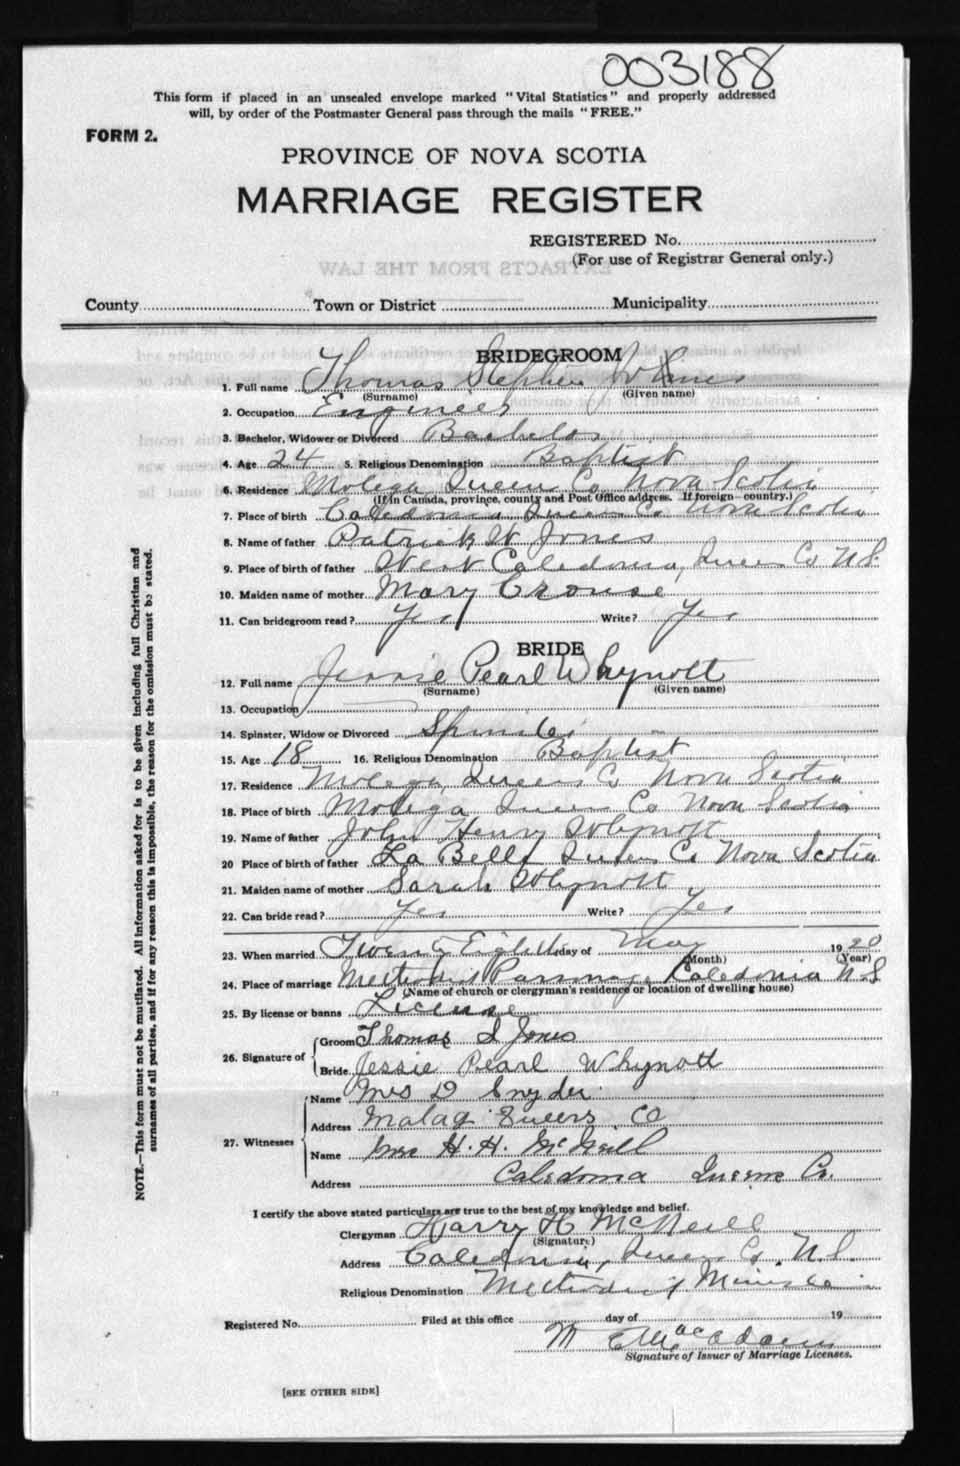 003188
This form if placed in an unsealed envelope marked "Vital Statistics" and properly addressed
will, by order of the Postmaster General pass through the mails "FREE."
FORM 2.
PROVINCE OF NOVA SCOTIA
MARRIAGE REGISTER
REGISTERED No.
(For use of Registrar General only.)
EXTRACTS FROM THE LAW
County Town or District Municipality
BRIDEGROOM
1. Full name Thomas Stephen Jones
(Surname) (Given name)
2. Occupation Engineer
3. Bachelor, Widower or Divorced Bachelor
4. Age 24 5. Religious Denomination Baptist
6. Residence Molega Queens Co Nova Scotia
(If in Canada, province, county and Post Office address. If foreign—country.)
7. Place of birth Caledonia Queens Co Nova Scotia
8. Name of father Patrick W Jones
9. Place of birth of father West Caledonia, Queens Co N.S.
10. Maiden name of mother Mary Crouse
11. Can bridegroom read? Yes Write? Yes
BRIDE
12. Full name Jessie Pearl Whynott
(Surname) (Given name)
13. Occupation
14. Spinster, Widow or Divorced Spinster
15. Age 18 16. Religious Denomination Baptist
17. Residence Molega, Queens Co Nova Scotia
18. Place of birth Molega Queens Co Nova Scotia
19. Name of father John Henry Whynott
20 Place of birth of father La Belle Queens Co Nova Scotia
21. Maiden name of mother Sarah Whynott
22. Can bride read? Yes Write? Yes
23. When married Twenty Eighth day of May 1920
(Month) (Year)
24. Place of marriage Methodist Parsonage, Caledonia N.S
(Name of church or clergyman's residence or location of dwelling house)
25. By license or banns License
26. Signature of Groom Thomas S Jones
Bride Jessie Pearl Whynott
27. Witnesses Name Mrs D Snyder
Address Malag Queens Co
Name Mrs H. H. McNeill
Address Caledonia Queens Co.
I certify the above stated particulars are true to the best of my knowledge and belief.
Clergyman Harry H McNeill
(Signature)
Address Caledonia, Queens Co. N.S.
Religious Denomination Methodist Minister
Registered No. Filed at this office day of 19
M E MacAdam
Signature of Issuer of Marriage Licenses.
[SEE OTHER SIDE]
NOTE.—This form must not be mutilated. All information asked for is to be given including full Christian and
surnames of all parties, and if for any reason this is impossible, the reason for the omission must be stated.